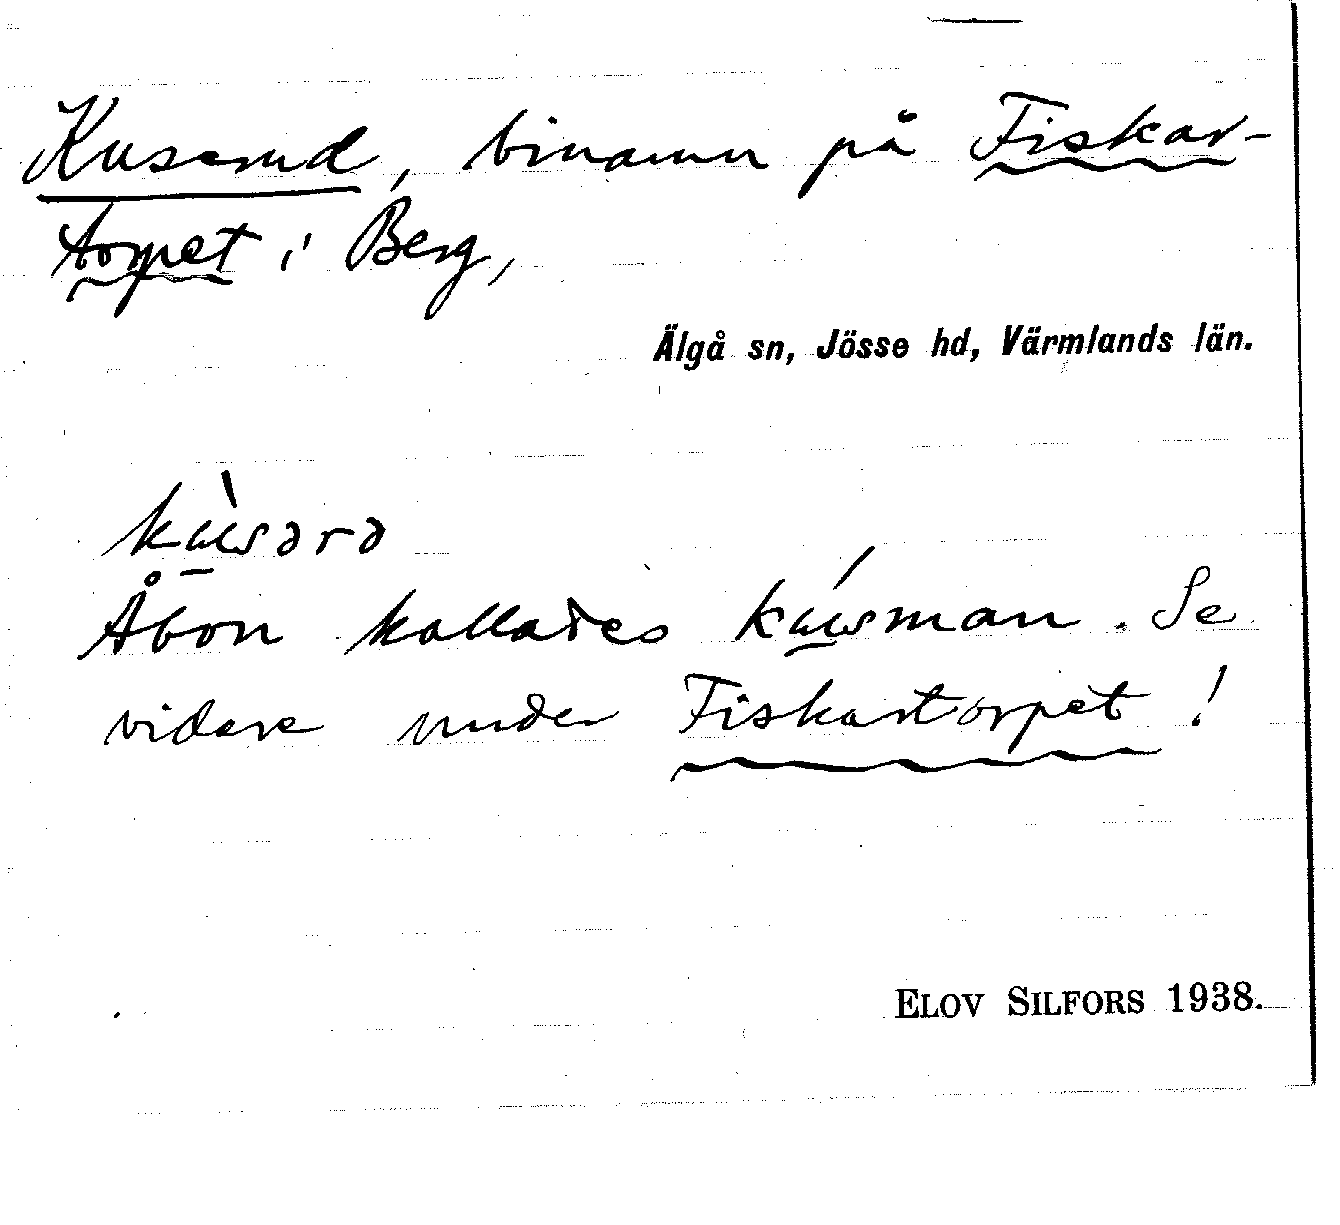 Kuserud, binamn på Fiskar-
torpet i Berg,
Älgå sn, Jösse hd, Värmlands län.
Åbon kallades kùsman. Se
vidare under Fiskartorpet!
ELOV SILFORS 1938.